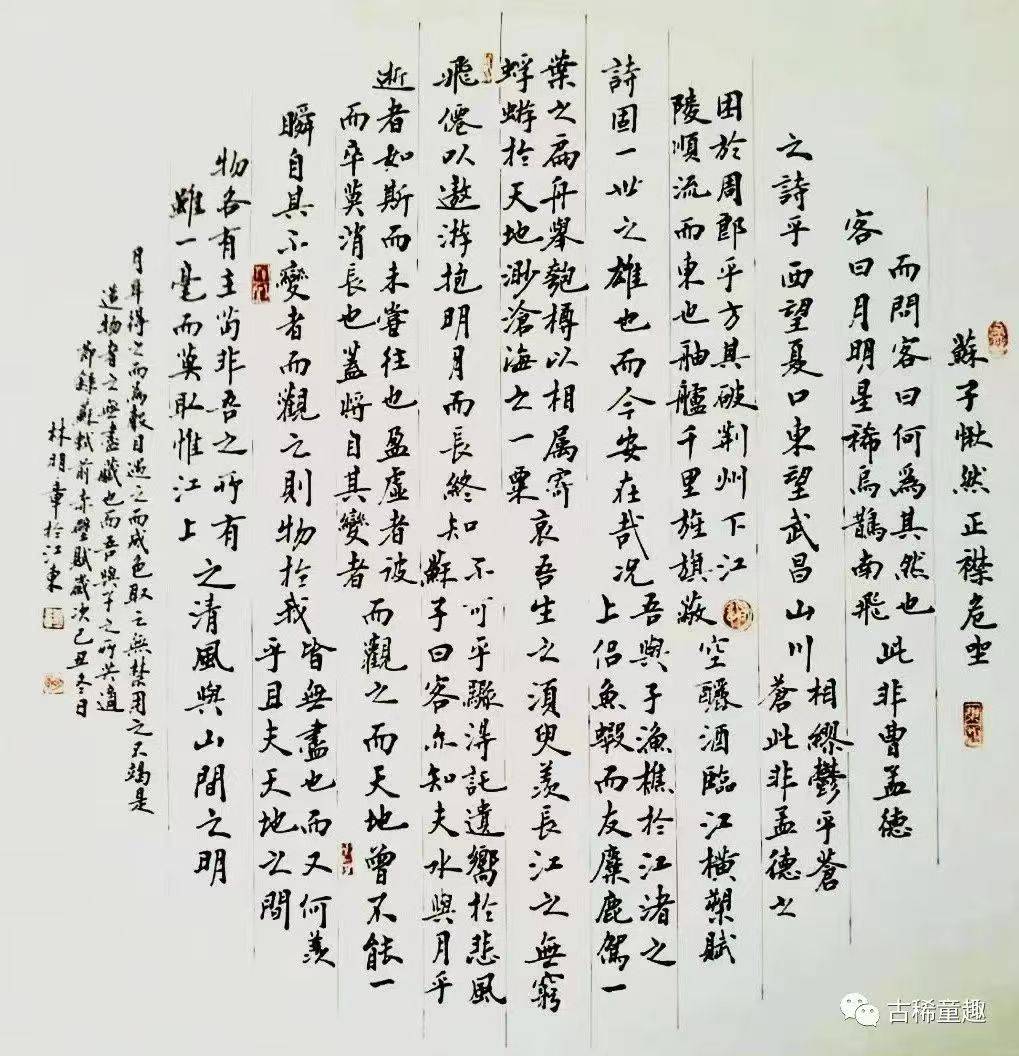 蘇子愀然正襟危坐
而問客曰何爲其然也
客曰月明星稀烏鵲南飛
此非曹孟德
之詩乎西望夏口東望武昌山川
相繆鬱乎蒼
蒼此非孟德之
困於周郎乎方其破荆州下江
陵順流而東也舳艫千里旌旗蔽
空釃酒臨江橫槊賦
詩固一世之雄也而今安在哉況
吾與子漁樵於江渚之
上侶魚蝦而友麋鹿駕一
葉之扁舟舉匏樽以相属寄
蜉蝣於天地渺滄海之一粟
哀吾生之須臾羨長江之無窮
飛僊以遨游抱明月而長終知
不可乎驟得託遺嚮於悲風
蘇子曰客亦知夫水與月乎
逝者如斯而未嘗往也盈虛者彼
而卒莫消長也蓋將自其變者
而觀之而天地曾不能一
瞬自其不變者而觀之則物於我
皆無盡也而又何羨
乎且夫天地之間
物各有主茍非吾之所有
雖一毫而莫取惟江上
之清風與山間之明
月耳得之而爲聲目遇之而成色取之無禁用之不竭是
造物者之無盡藏也而吾與子之所共適
節錄蘇軾前赤壁賦歲次己丑冬日
林明章於江東
古稀童趣